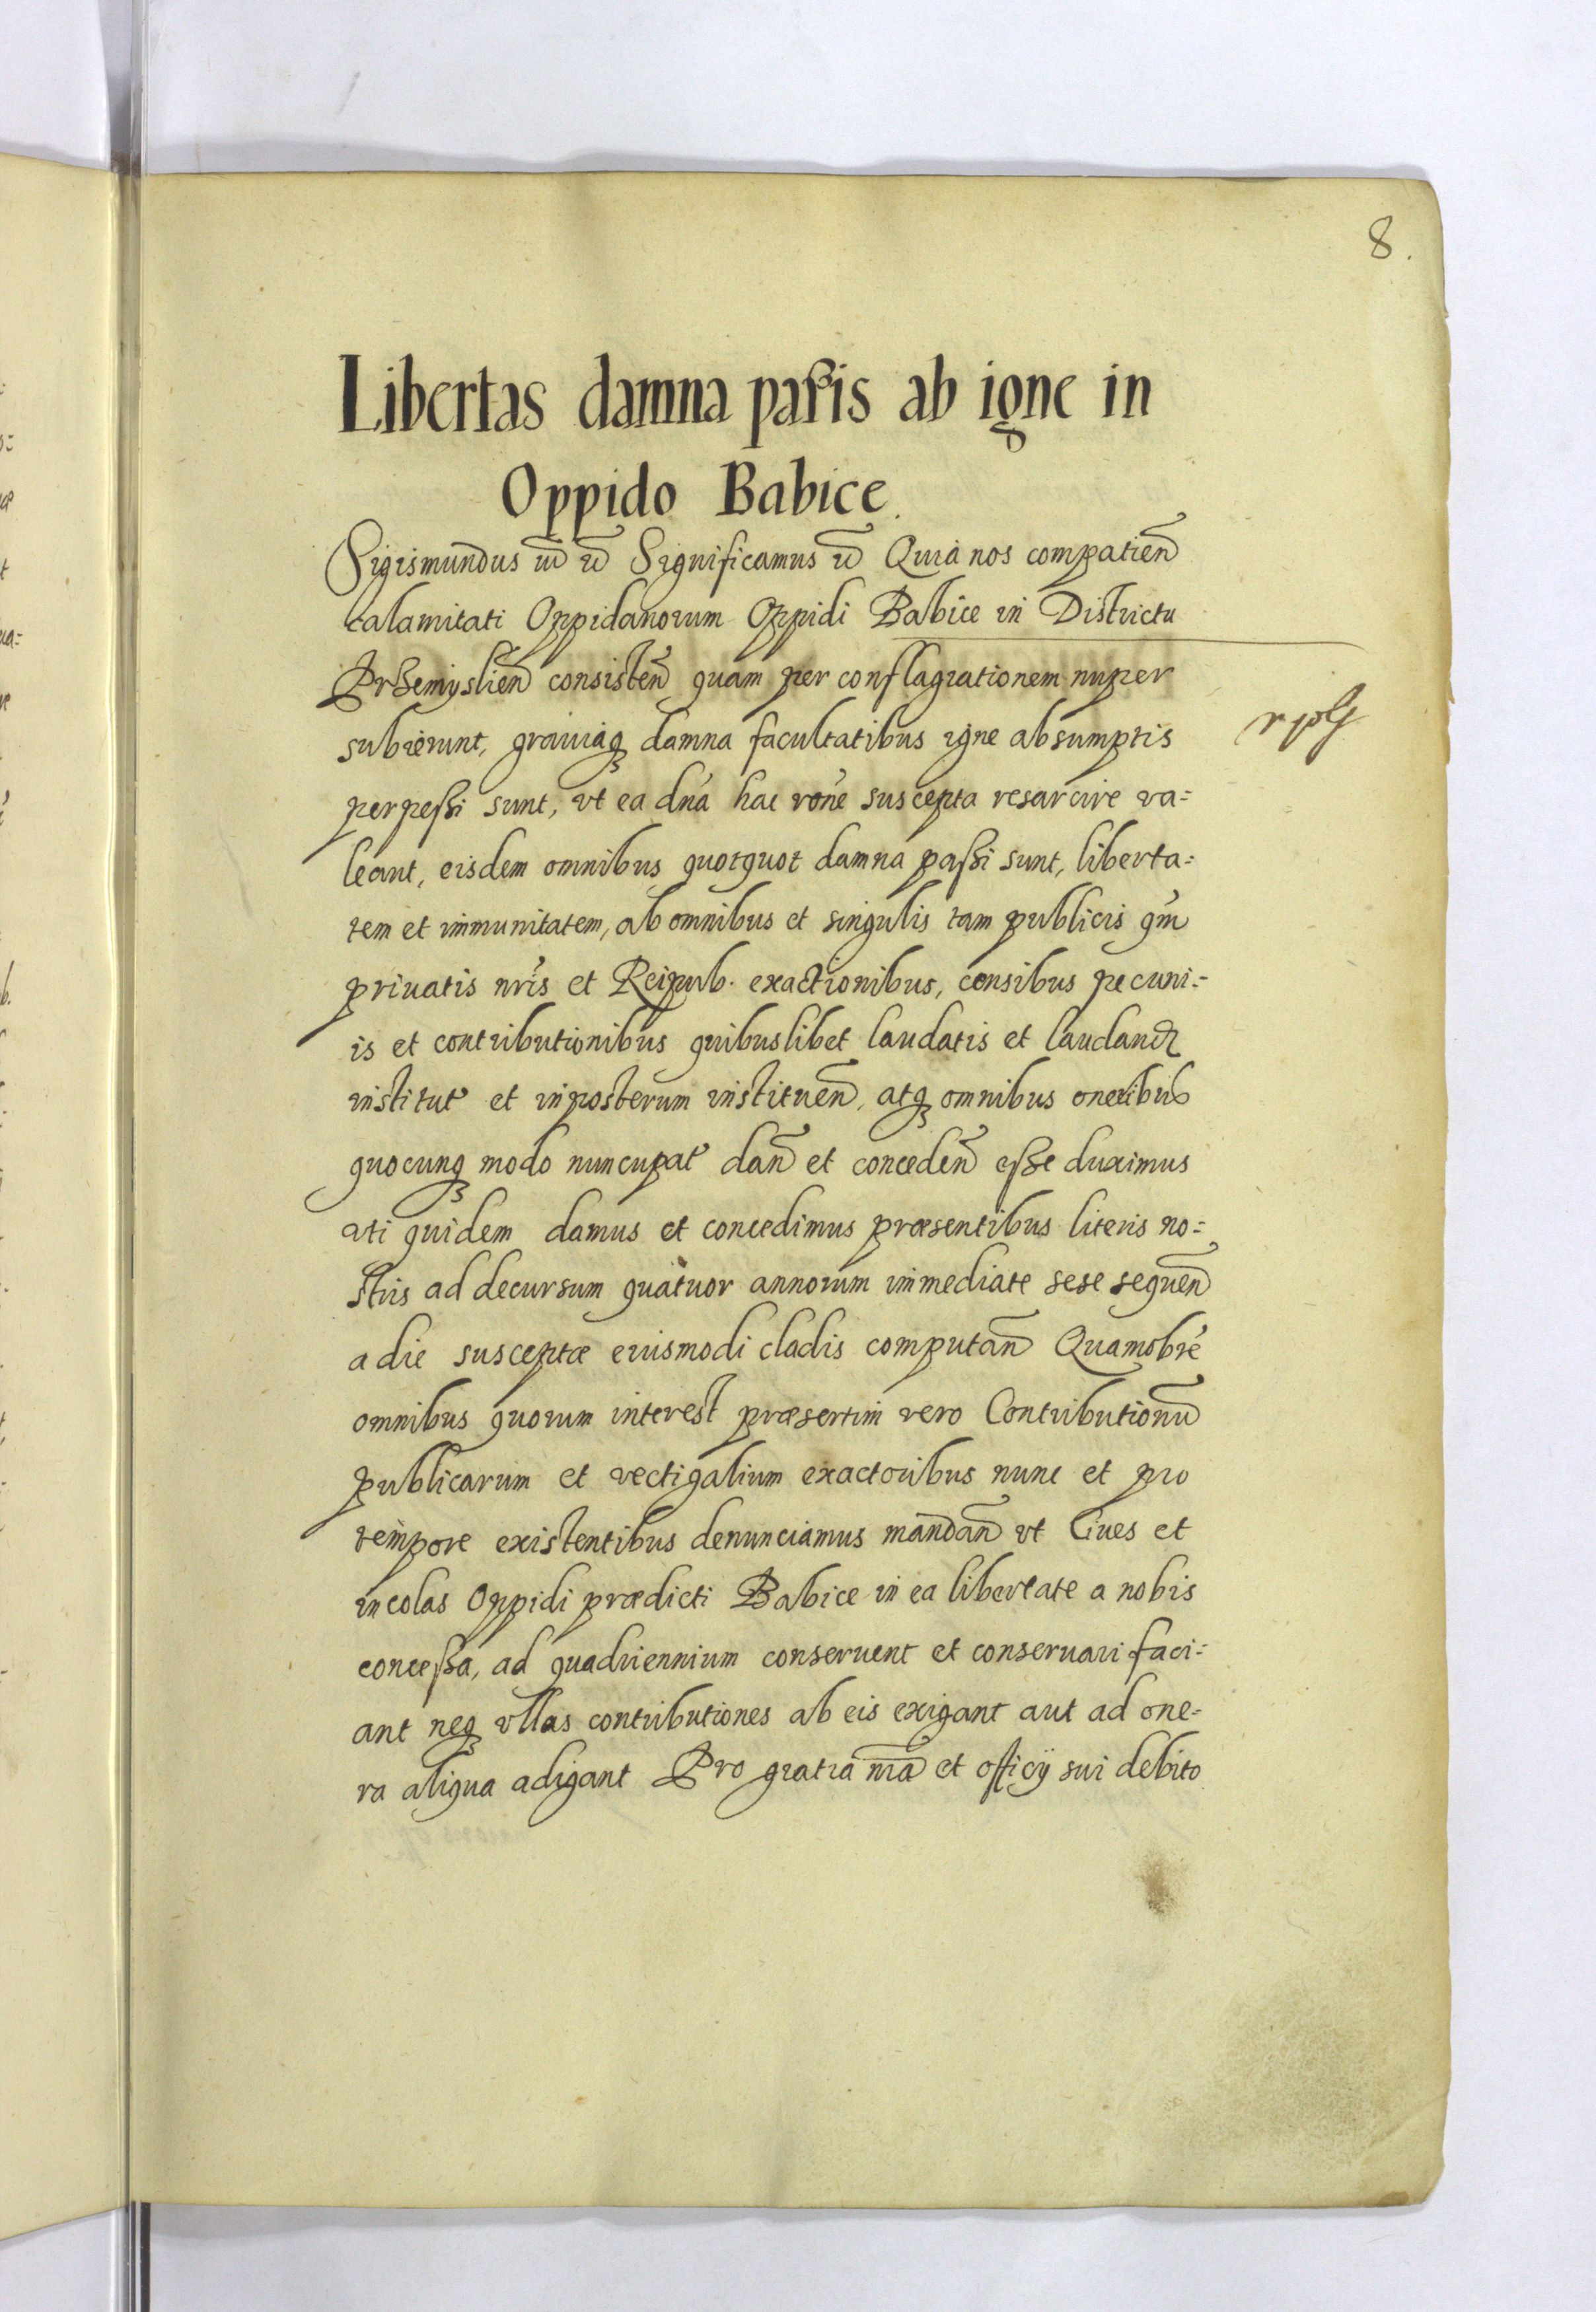 8.
Libertas damna paßis ab igne in
Oppido Babice.
Sigismundus Significamus Quia nos compatien̄
calamitati Oppidanorum Oppidi Babice in Districtu
Przemyslien̄ consisten̄ quam per conflagrationem nuper
subierunt, grauiaq; damna facultatibus igne absumptis
perpeßi sunt, vt ea dn̄a hac rōne suscepta resarcire va=
leant, eisdem omnibus quotquot damna paßi sunt, liberta=
tem et immunitatem, ab omnibus et singulis tam publicis qm̄
priuatis nr̄is et Reipub. exactionibus, censibus pecuni=
is et contributionibus quibuslibet laudatis et laudand
institut et inposterum instituen̄, atq; omnibus oneribus
quocunq; modo nuncupat dan̄ et conceden̄ eße duximus
vti quidem damus et concedimus præsentibus literis no=
stris ad decursum quatuor annorum immediate sese sequen̄
a die susceptæ eiusmodi cladis computan̄ Quamobrē
omnibus quorum interest præsertim vero Contributionū
publicarum et vectigalium exactoribus nunc et pro
tempore existentibus denunciamus mandan̄ vt Ciues et
incolas Oppidi prædicti Babice in ea libertate a nobis
conceßa, ad quadriennium conseruent et conseruari faci=
ant neq; vllas contributiones ab eis exigant aut ad one=
ra aliqua adigant Pro gratia nr̄a et officij sui debito